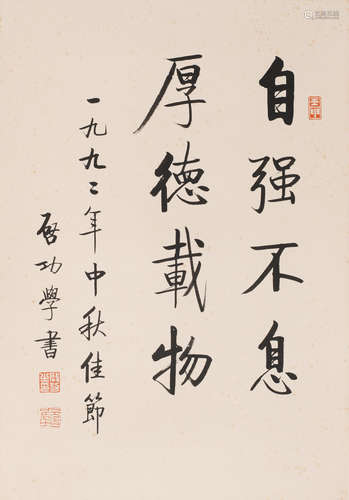 自强不息
厚德載物
一九九二年中秋佳節
启功學書